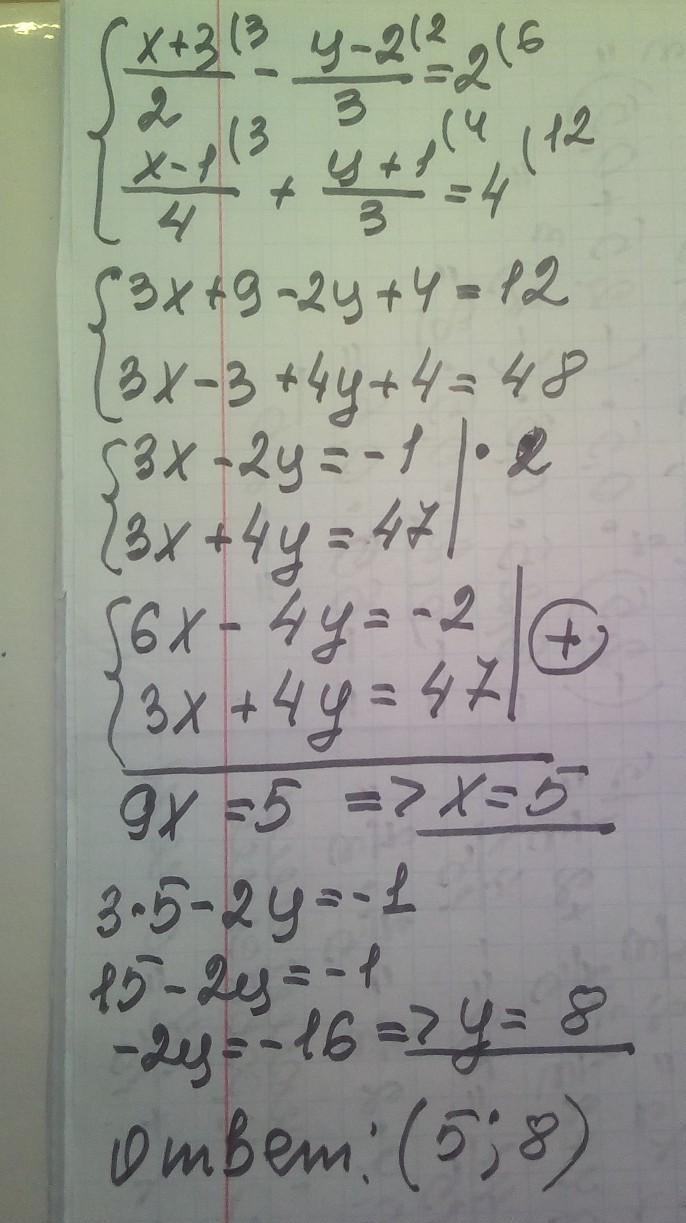 x+3(3/2 - y-2(2/3 = 2(6
x-1(3/4 + y+1(4/3 = 4(12
3x+9-2y+4=12
3x-3+4y+4=48
3x-2y=-1 | · 2
3x+4y=47
6x-4y=-2 | +
3x+4y=47
9x=5 => x=5
3·5-2y=-1
15-2y=-1
-2y=-16 => y= 8
Ответ: (5; 8)